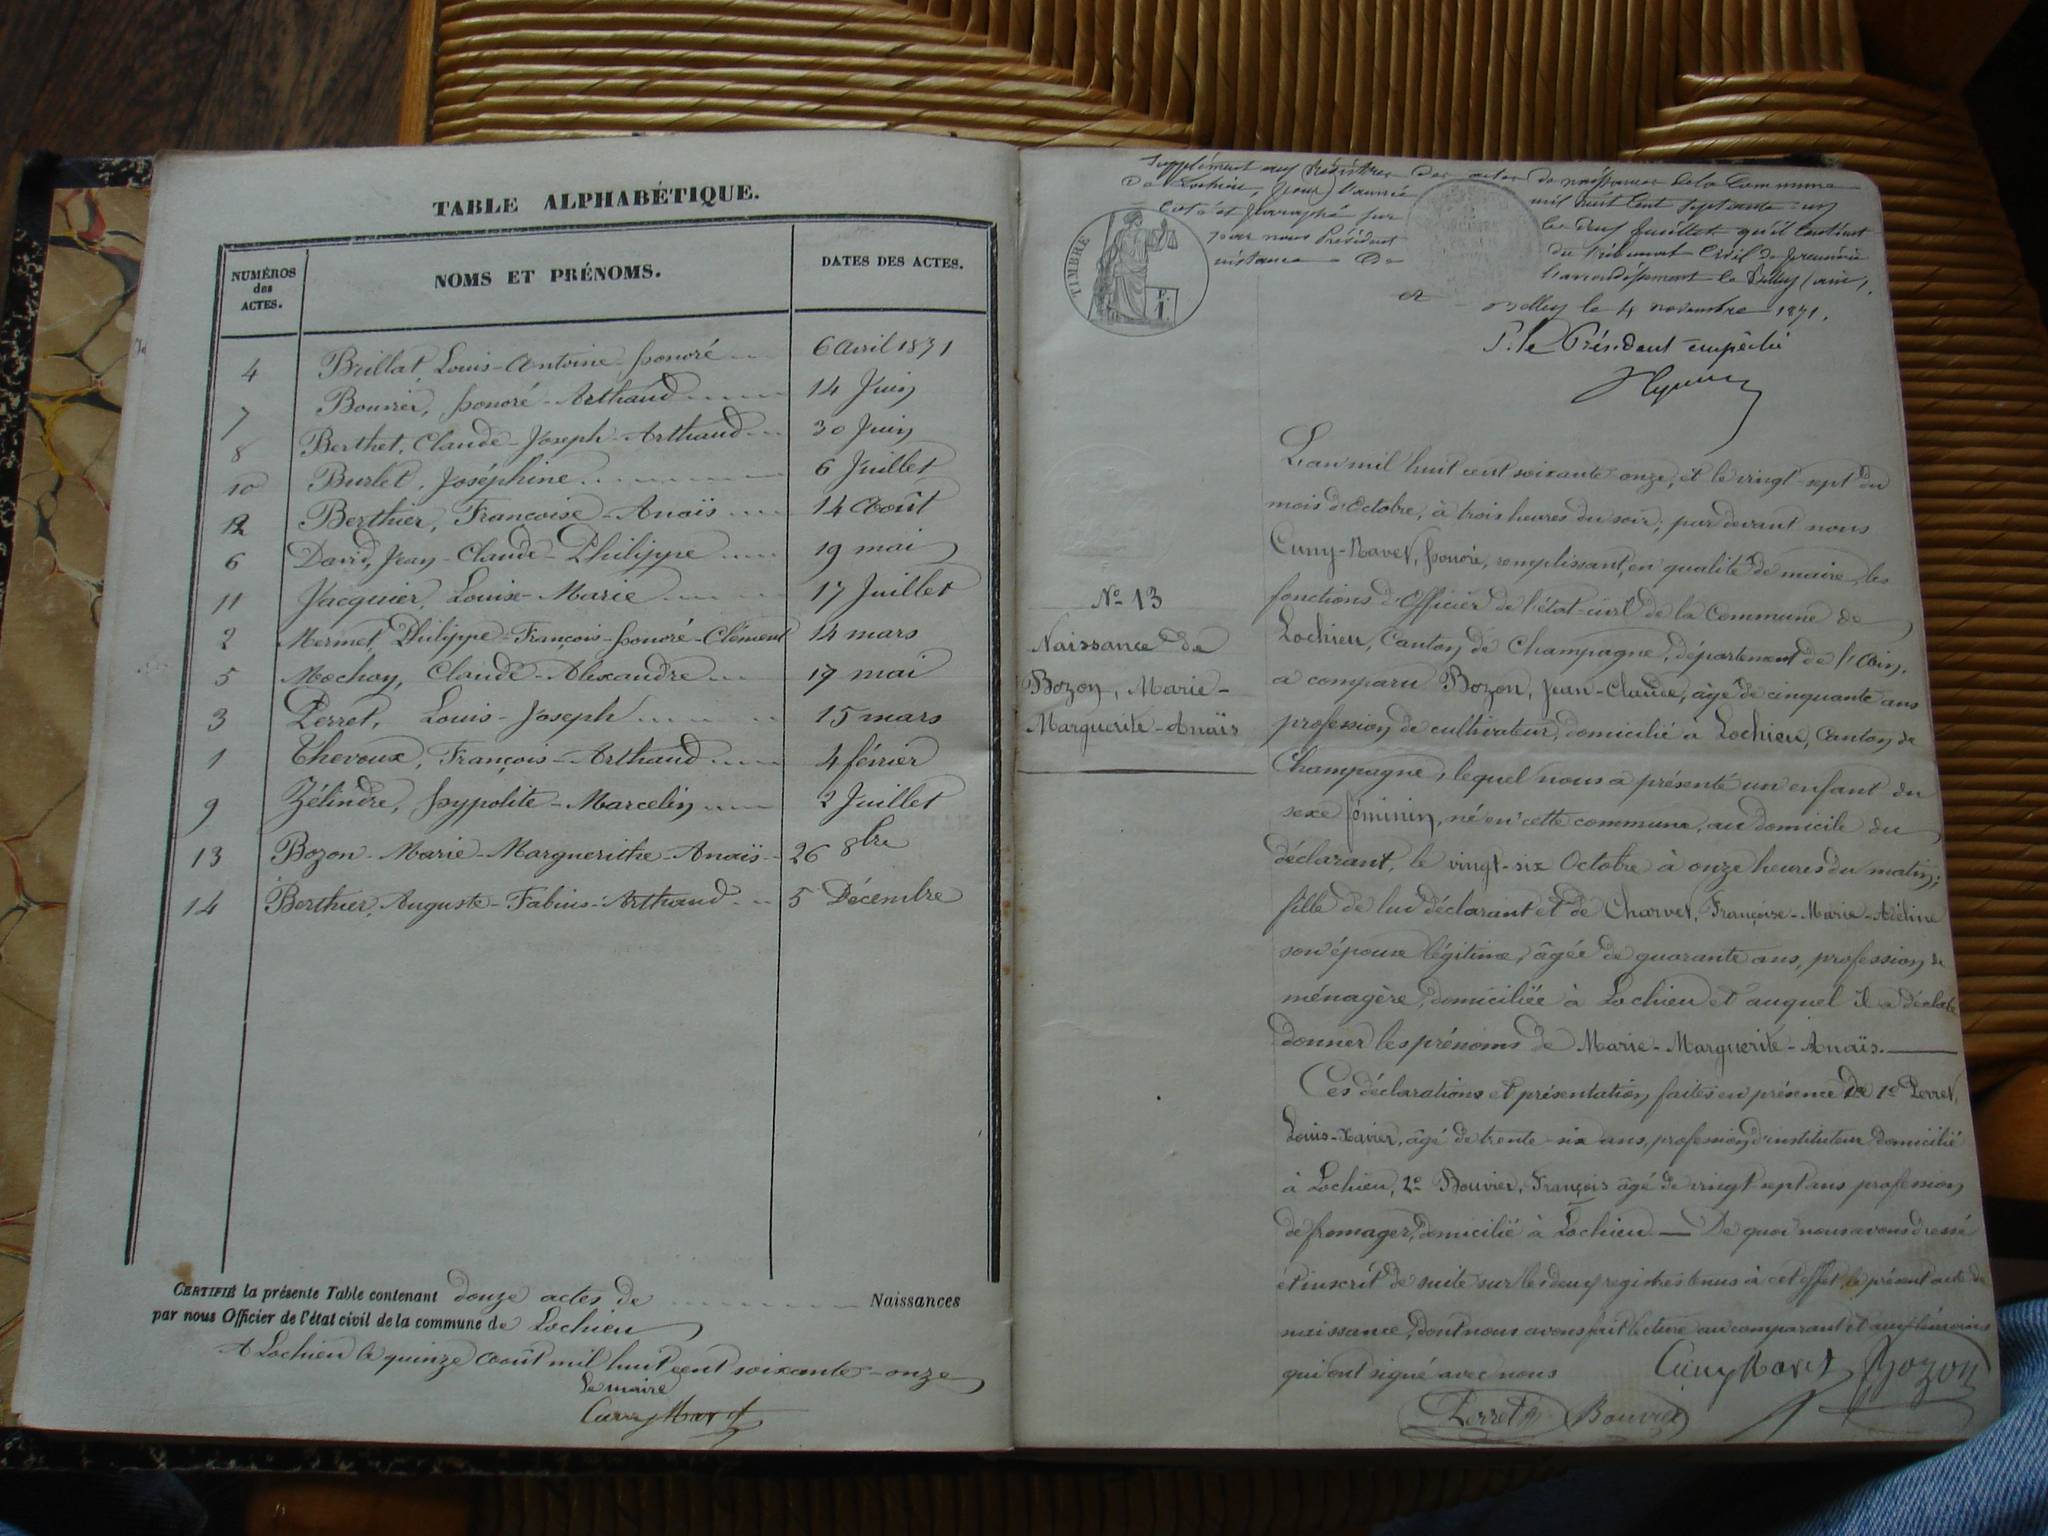 TABLE ALPHABÉTIQUE.
NUMÉROS des ACTES. NOMS ET PRÉNOMS. DATES DES ACTES.
4 Brillat Louis-Antoine-honoré 6 avril 1871
7 Bouvier, honoré-Arthaud 14 Juin
8 Berthet, Claude-Joseph-Arthaud 30 Juin
10 Burlet, Joséphine 6 Juillet
12 Berthier, Françoise-Anaïs 14 Août
6 David, Jean-Claude-Philippe 19 mai
11 Jacquier, Louise-Marie 17 Juillet
2 Mermet, Philippe-François-honoré-Clément 14 mars
5 Mochon, Claude-Alexandre 17 mai
3 Perret, Louis-Joseph 15 mars
1 Thevoux, François-Arthaud 4 février
9 Zélindre, hypolite-Marcelin 2 Juillet
13 Bozon-Marie-Marguerithe-Anaïs 26 8bre
14 Berthier, Auguste-Fabius-Arthaud 5 Décembre
CERTIFIÉ la présente Table contenant douze actes de Naissances
par nous Officier de l'état civil de la commune de Lochieu
A Lochieu le quinze Août mil huit cent soixante-onze
Le maire
Cuny Navet
Supplément aux Régistres des actes de naissances de la Commune
de Lochieu, pour l'année mil huit cent septante-un
Coté et paraphé par le deux feuillet qu'il contient
par nous Président du Tribunal Civil de première
instance de l'arrondissement de Belley (ain),
Belley le 4 novembre 1871.
P. le Président empêché
TIMBRE
F. 1.
L'an mil huit cent soixante onze, et le vingt-sept du
mois d'Octobre, à trois heures du soir, par devant nous
Cuny-Navet, honoré, remplissant, en qualité de maire, les
fonctions d'Officier de l'état-civil de la Commune de
Lochieu, Canton de Champagne, département de l'Ain,
a comparu Bozon, Jean-Claude, âgé de cinquante ans
profession de cultivateur, domicilié à Lochieu, Canton de
Champagne, lequel nous a présenté un enfant du
sexe féminin, né en cette commune, au domicile du
déclarant, le vingt-six Octobre à onze heures du matin;
fille de lui déclarant et de Charvet, Françoise-Marie-Adéline
son épouse légitime, âgée de quarante ans, profession de
ménagère, domiciliée à Lochieu et auquel il a déclaré
donner les prénoms de Marie-Marguerite-Anaïs.
Nº 13
Naissance de
Bozon, Marie-
Marguerite-Anaïs
Ces déclarations et présentation faites en présence de 1º Perret,
Louis-Xavier, âgé de trente-six ans, profession d'instituteur domicilié
à Lochieu, 2º Bouvier, François âgé de vingt-sept ans profession
de fromager, domicilié à Lochieu — De quoi nous avons dressé
et inscrit de suite sur les deux registres tenus à cet effet le présent acte de
naissance, dont nous avons fait lecture au comparant et aux témoins
qui ont signé avec nous Cuny Navet Bozon
Perret Bouvier